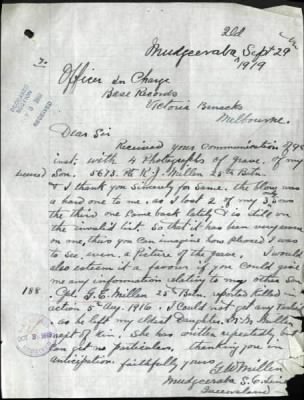 Qld
Mudgeeraba Sept 29
1919
Officer In Charge
Base Records
Victoria Barracks
Melbourne.
Dear Sir
Received your communication
inst. with 4 Photographs of grave, of my
Son. 5673. Pte K. J. Millen 25th Batn.
& I thank you sincerely for same. the blow was
a hard one to me. as I lost 2 of my 3 sons
the third one came back lately & is still on
the invalid list. So that it has been very severe
on me, thus you can imagine how pleased I was
to see, even a Picture of the grave. I would
also esteem it a favour if you could give
me any information relating to my other Son
188
Millen 25th Batn. reported killed in
action 5 Aug. 1916. I could not get any
as he left my eldest Daughter. M. M. Millen
next of kin. She has written repeatedly but
can get no particulars, thanking you in
anticipation. faithfully yours
Millen
Mudgeeraba S. C. Line
Queensland
RECEIVED